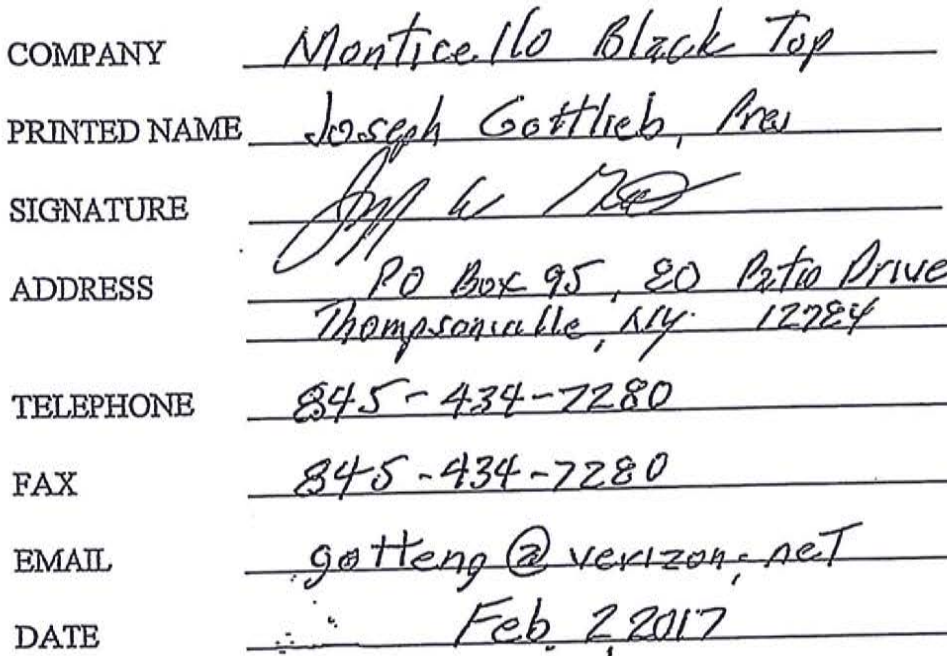 COMPANY Monticello Black Top
PRINTED NAME Joseph Gottlieb, Pres
SIGNATURE
ADDRESS PO Box 95, 80 Patio Drive
Thompsonville, NY 12784
TELEPHONE 845-434-7280
FAX 845-434-7280
EMAIL gotteng@verizon.net
DATE Feb 2, 2017